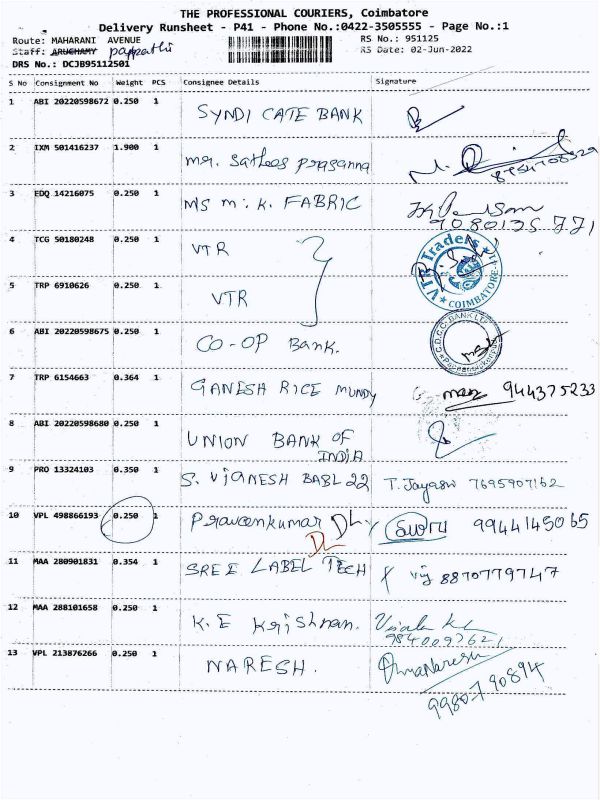 THE PROFESSIONAL COURIERS, Coimbatore
Delivery Runsheet - P41 - Phone No.:0422-3505555 - Page No.:1
Route: MAHARANI AVENUE
RS No.: 951125
Staff: ARUCHAMY pappathi
RS Date: 02-Jun-2022
DRS No.: DCJB95112501
S No Consignment No Weight PCS Consignee Details Signature
1 ABI 20220598672 0.250 1 SYNDI CATE BANK
2 IXM 501416237 1.900 1 mr. Sathees prasanna
3 EDQ 14216075 0.250 1 MS m. K. FABRIC
9080135771
4 TCG 50180248 0.250 1 VTR
VTR Traders COIMBATORE-11
5 TRP 6910626 0.250 1 VTR
6 ABI 20220598675 0.250 1 CO-OP Bank.
C.D.C.C. BANK LTD
7 TRP 6154663 0.364 1 GANESH RICE MUNDY 944375233
8 ABI 20220598680 0.250 1 UNION BANK OF
INDIA
9 PRO 13324103 0.350 1 S. VIGNESH BABL 22 T. Jayasri 7695907162
10 VPL 498866193 0.250 1 Praveenkumar DL 9944145065
DL
11 MAA 280901831 0.354 1 SREE LABEL TECH Vij 8870779747
12 MAA 288101658 0.250 1 K.E Krishnan.
9840097621
13 VPL 213876266 0.250 1 NARESH.
9980790894